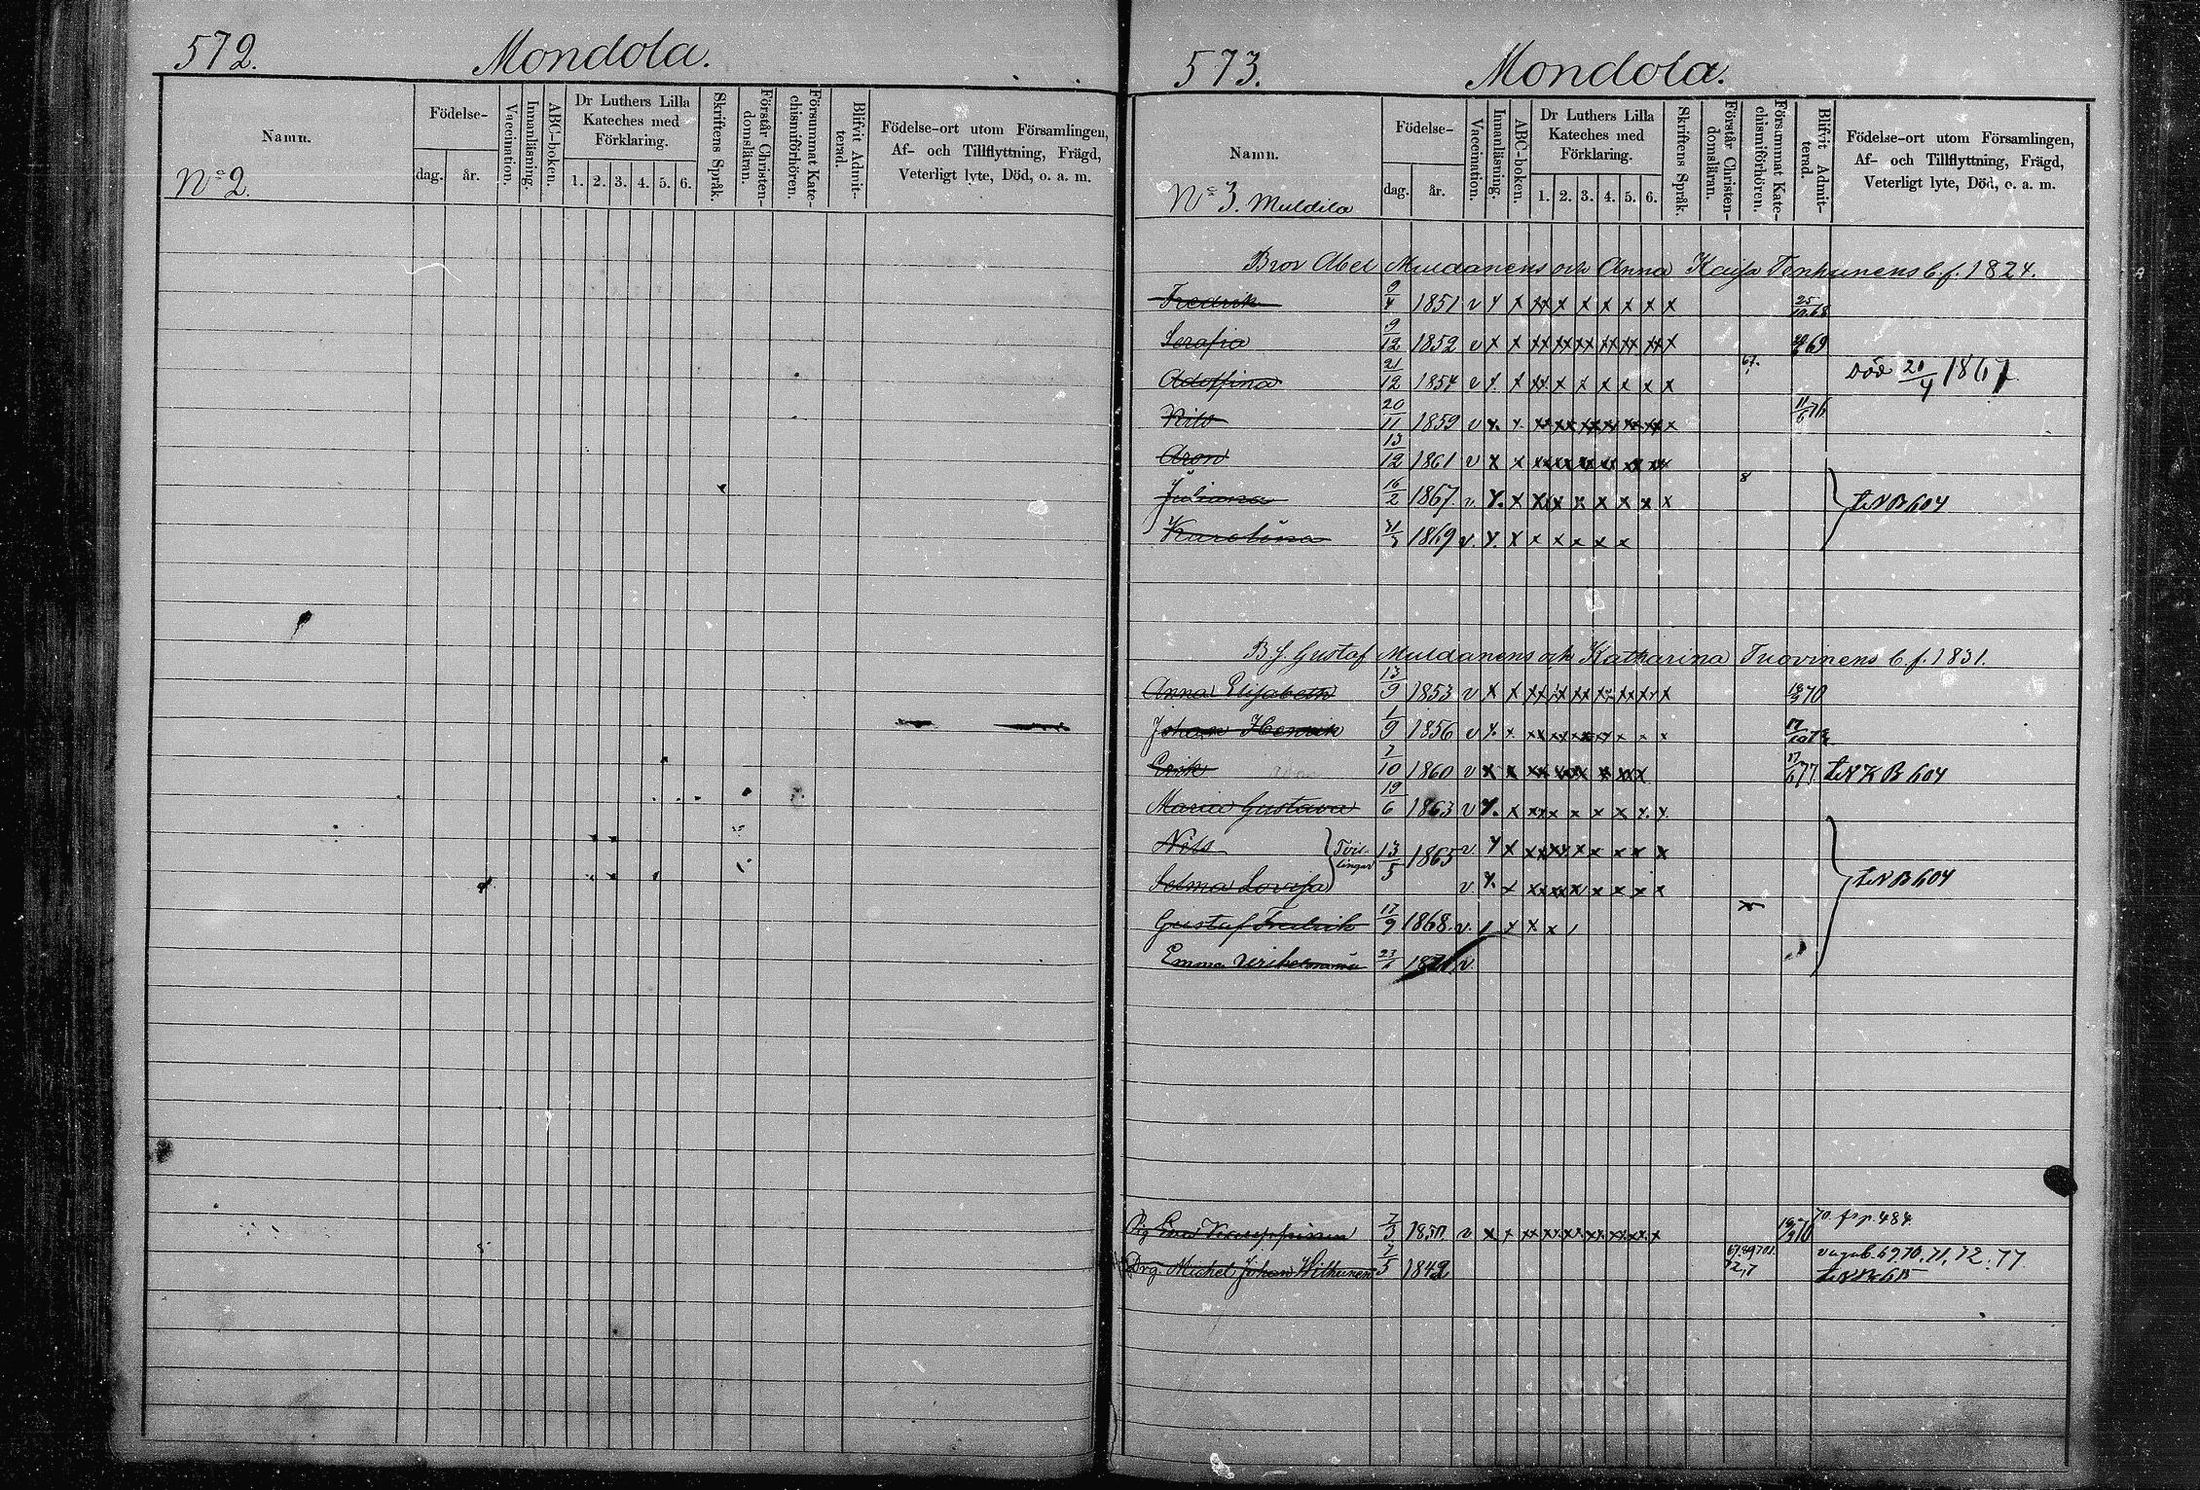 572. Mondola.
Namn.
Födelse-
dag. år.
Vaccination.
Innanläsning.
ABC-boken.
Dr Luthers Lilla Kateches med Förklaring.
1. 2. 3. 4. 5. 6.
Skriftens Språk.
Förstår Christen-domsläran.
Försummat Kate-chismiförhören.
Blifvit Admit-terad.
Födelse-ort utom Församlingen,
Af- och Tillflyttning, Frägd,
Veterligt lyte, Död, o. a. m.
No 2.
573. Mondola.
Namn.
Födelse-
dag. år.
Vaccination.
Innanläsning.
ABC-boken.
Dr Luthers Lilla Kateches med Förklaring.
1. 2. 3. 4. 5. 6.
Skriftens Språk.
Förstår Christen-domsläran.
Försummat Kate-chismiförhören.
Blifvit Admit-terad.
Födelse-ort utom Församlingen,
Af- och Tillflyttning, Frägd,
Veterligt lyte, Död, o. a. m.
No 3. Muldila
Bror Abel Muldanens och Anna Kaisa Tenhunens b. f. 1824.
Fredrik 9/4 1851 v x x xx x x x x x x 25/10 68
Serafia 9/12 1852 v x x xx xx xx xx xx xx x 69
Adolfina 21/12 1854 v x x xx x x x x x x 67. Död 20/4 1867
Nils 20/11 1859 v x x 11/6 76
Aron 13/12 1861 v x x
Juliana 16/2 1867 v. x. x xx x x x x x x 8 B 604
Karolina 1869 v. x. x x x x x x
B. f. Gustaf Muldanens och Katharina Tuovinens b. f. 1831.
Anna Elisabeth 13/9 1853 v x x 70
Johan Henrik 1/9 1856 v x x
Erik 7/10 1860 v x x 77 B 604
Maria Gustava 19/6 1863 v x. x xx x x x x x x
Nils Tvil-lingar 13/5 1865 v. x x
Selma Lovisa v x. x B 604
Gustaf Fredrik 17/9 1868. v. / x x x /
Emma Vilhelmina 23/6 v.
7/3 1850 v x x 70 70. p. 484
Drg. Michel Johan 7/5 1842 69.70.71.72.77